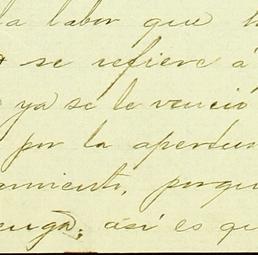 la labor que h
se refiere á
ya se le venció
por la apertu
amiento, porqu
enga; así es qu